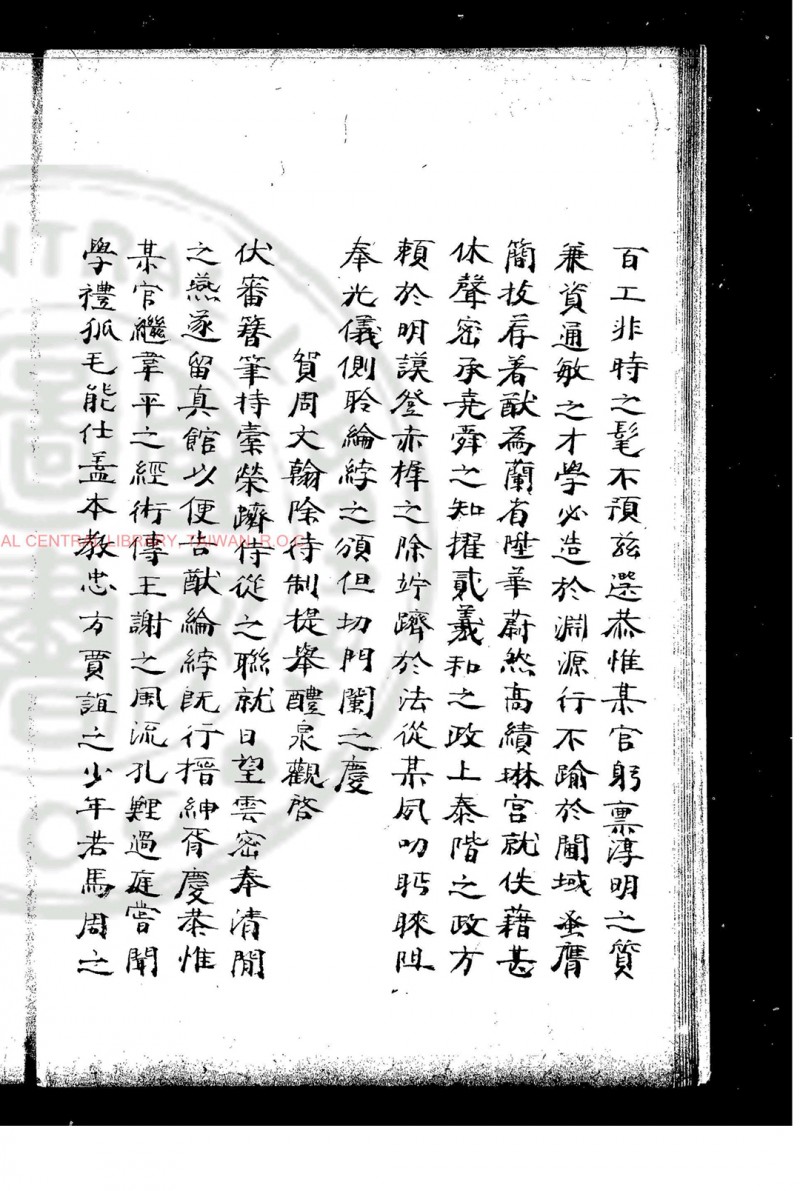 百工非時之髦不預茲選恭惟某官躬稟淳明之質
兼資通敏之才學必造於淵源行不踰於閫域蚤膺
簡拔荐著猷為蘭省陞華蔚然高績琳宮就佚藉甚
休聲密承堯舜之知擢貳羲和之政上泰階之政方
賴於明謨登赤墀之除竚躋於法從某夙叨眄睞阻
奉光儀側聆綸綍之頒但切門闌之慶
賀周文翰除待制提舉醴泉觀啓
伏審簪筆持橐榮躋侍從之聯就日望雲密奉清閒
之燕遂留真館以便告猷綸綍既行搢紳胥慶恭惟
某官繼韋平之經術傳王謝之風流孔鯉過庭嘗聞
學禮狐毛能仕盖本教忠方賈誼之少年若馬周之
AL CENTRAL LIBRARY, TAIWAN, R.O.C